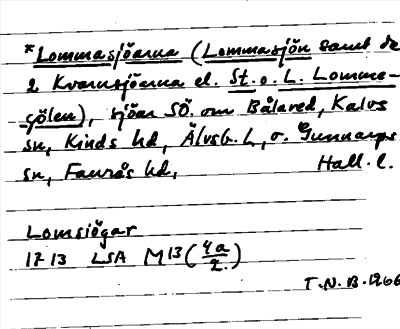 *Lommasjöarna (Lommasjön samt de
2 Kvarnsjöarna el. St. o. L. Lomme-
gölen), sjöar SÖ. om Bålared, Kalvs
sn, Kinds hd, Älvsb. l., o. Gunnarps
sn, Faurås hd, Hall. l.
Lomsiögar
1713 LSA M13 (4a/2)
T.N.B. 1266